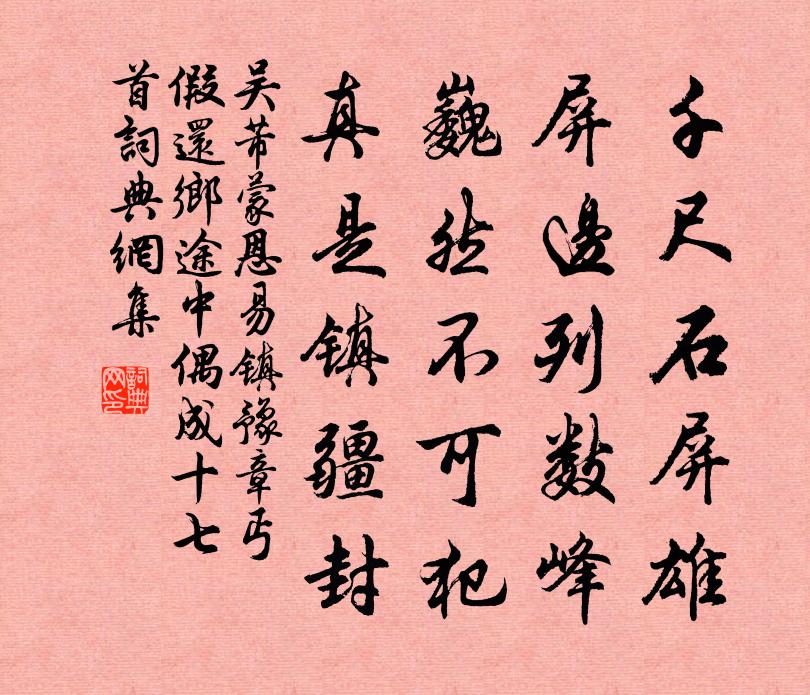 千尺石屏雄
屏邊列數峰
巍然不可犯
真是鎮疆封
吴芾蒙恩易镇豫章丐
假還鄉途中偶成十七
首詞典網集
詞典
网印